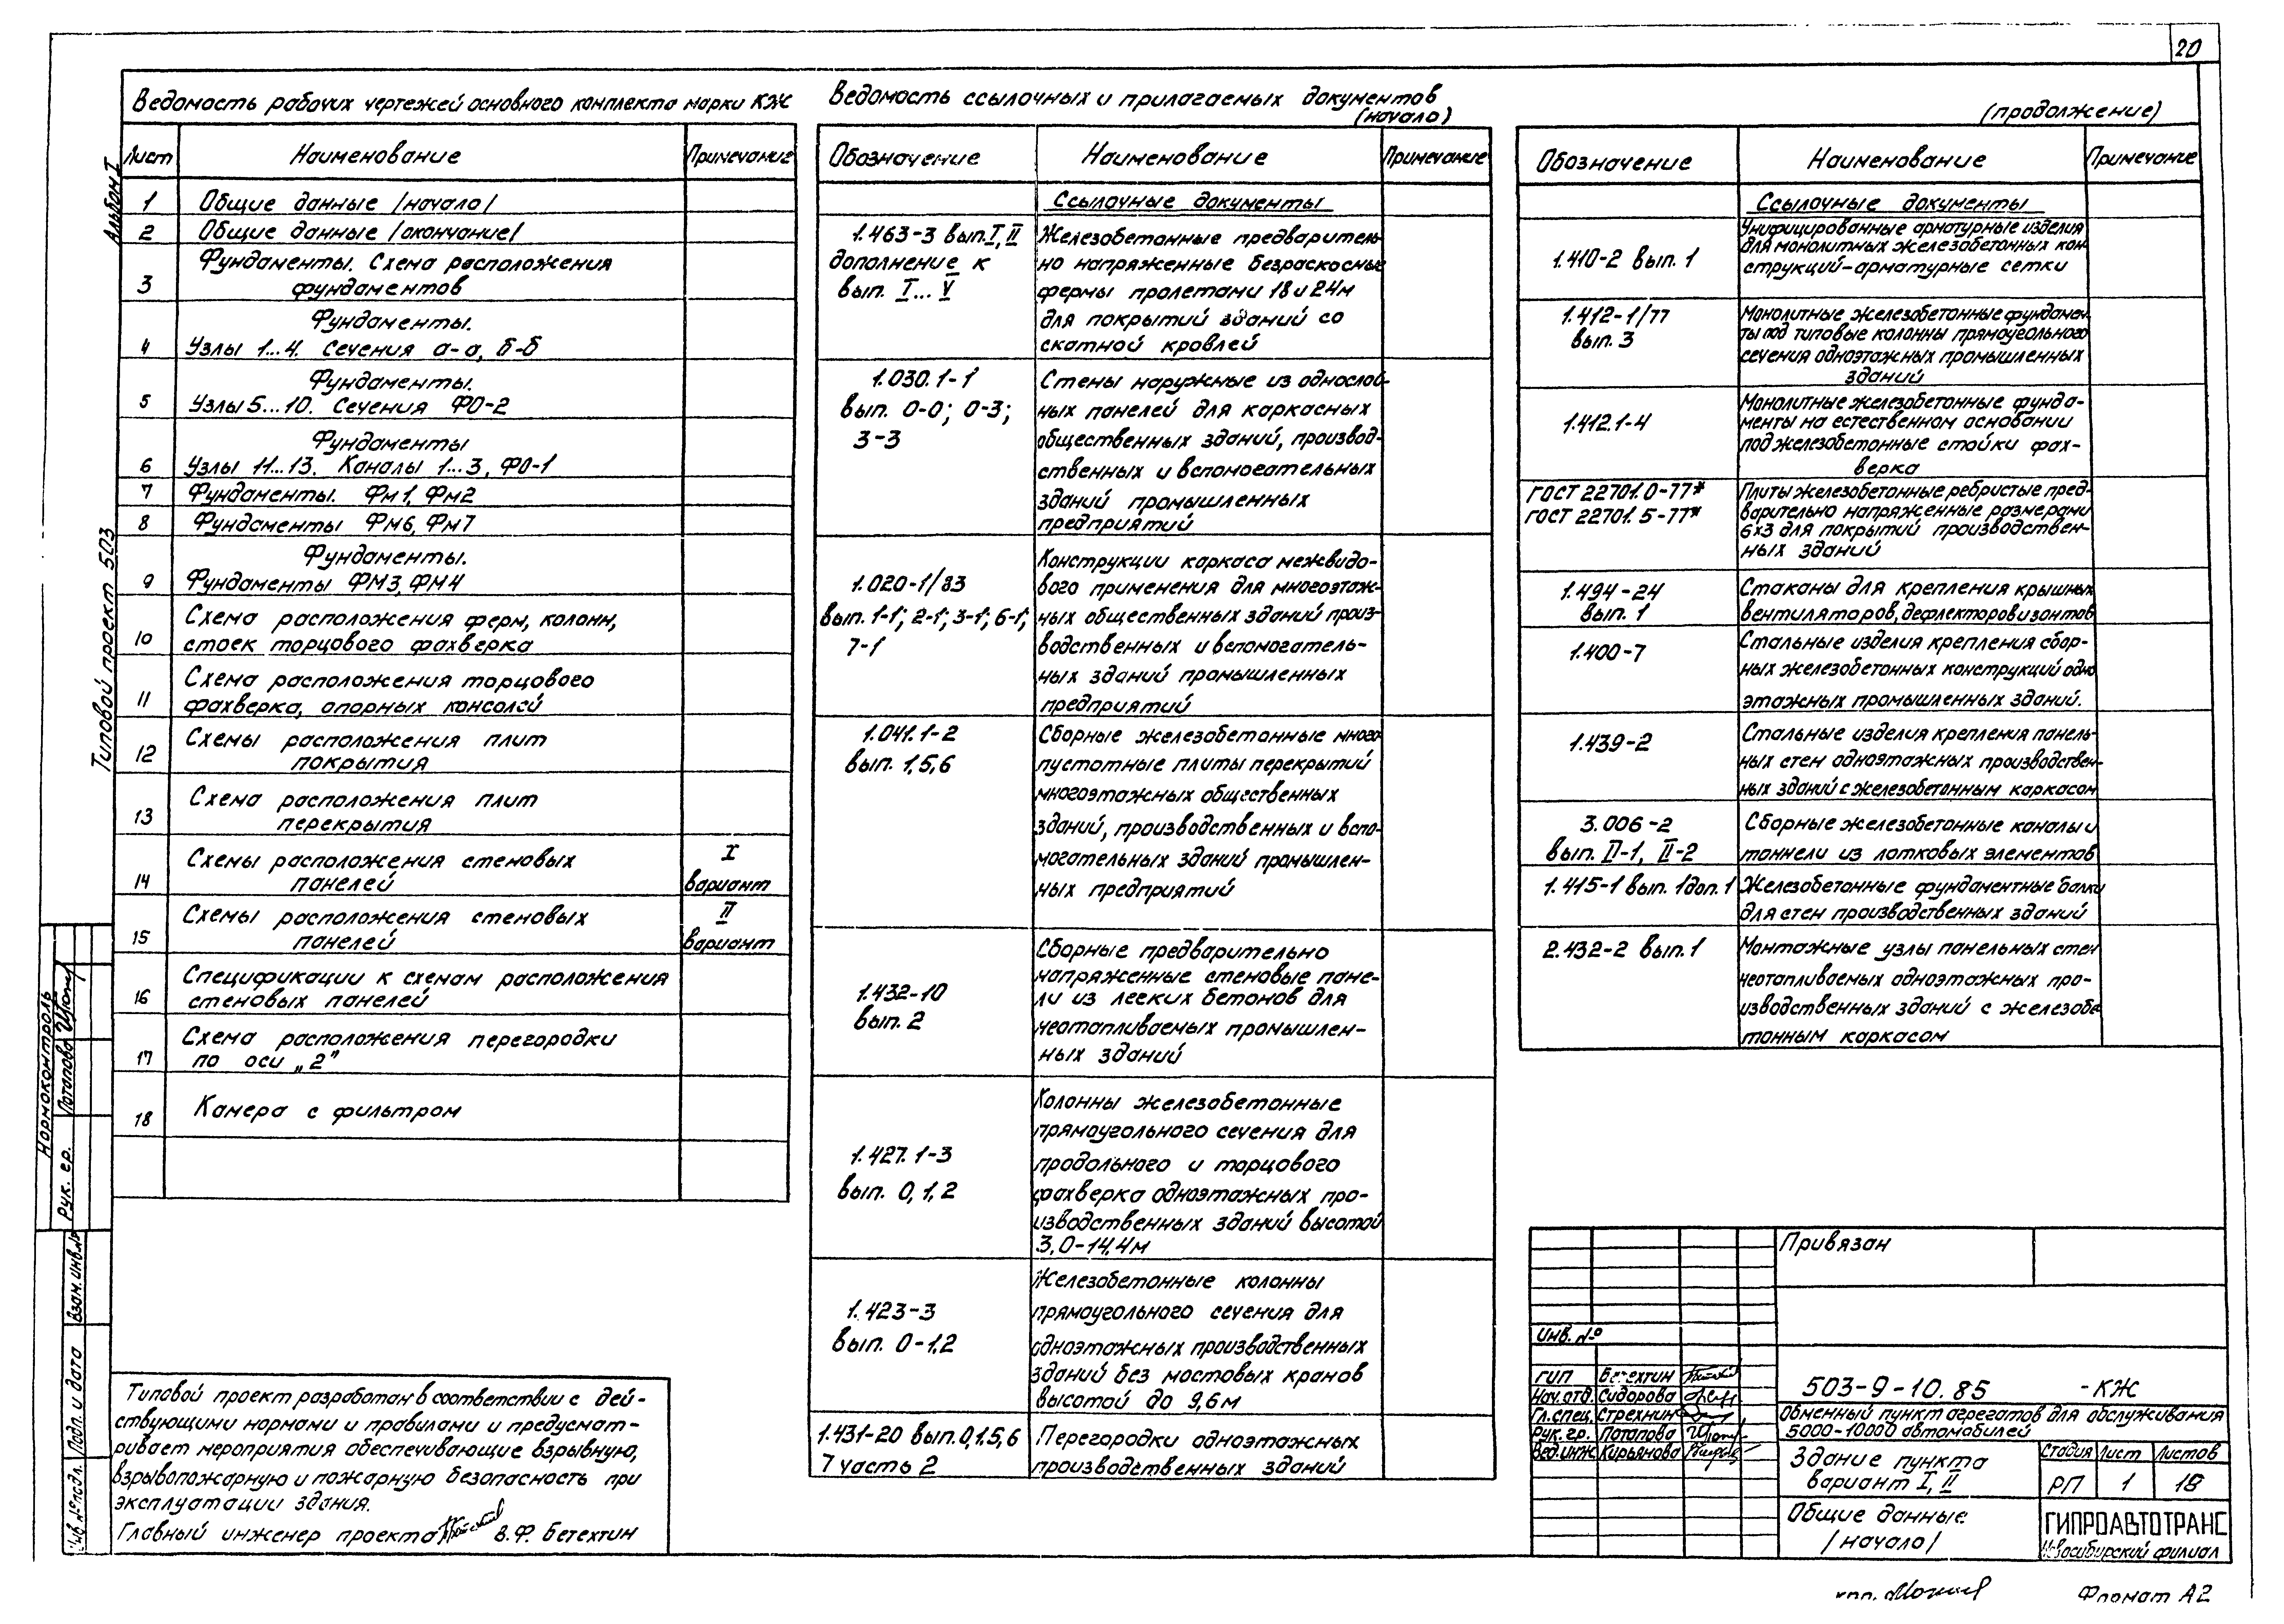 20
Ведомость рабочих чертежей основного комплекта марки КЖ
Лист Наименование Примечание
1 Общие данные /начало/
2 Общие данные /окончание/
Фундаменты. Схема расположения
3 фундаментов
Фундаменты.
4 Узлы 1...4. Сечения а-а, б-б
Фундаменты.
5 Узлы 5...10. Сечения ФО-2
Фундаменты
6 Узлы 11...13. Каналы 1...3, ФО-1
7 Фундаменты. Фм1, Фм2
8 Фундаменты Фм6, Фм7
Фундаменты.
9 Фундаменты ФМ3, ФМ4
Схема расположения ферм, колонн,
10 стоек торцового фахверка
Схема расположения торцового
11 фахверка, опорных консолей
Схемы расположения плит
12 покрытия
Схема расположения плит
13 перекрытия
Схемы расположения стеновых I
14 панелей вариант
Схемы расположения стеновых II
15 панелей вариант
Спецификации к схемам расположения
16 стеновых панелей
Схема расположения перегородки
17 по оси „2"
18 Камера с фильтром
Типовой проект разработан в соответствии с дей-
ствующими нормами и правилами и предусмат-
ривает мероприятия обеспечивающие взрывную,
взрывопожарную и пожарную безопасность при
эксплуатации здания.
Главный инженер проекта В.Ф. Бетехтин
Ведомость ссылочных и прилагаемых документов
(начало)
Обозначение Наименование Примечание
Ссылочные документы
1.463-3 вып. I, II Железобетонные предваритель-
дополнение к но напряженные безраскосные
вып. I... V фермы пролетами 18 и 24м
для покрытий зданий со
скатной кровлей
1.030.1-1 Стены наружные из однослой-
вып. 0-0; 0-3; ных панелей для каркасных
3-3 общественных зданий, производ-
ственных и вспомогательных
зданий промышленных
предприятий
Конструкции каркаса межвидо-
1.020-1/83 вого применения для многоэтаж-
вып. 1-1; 2-1; 3-1; 6-1; ных общественных зданий произ-
7-1 водственных и вспомогатель-
ных зданий промышленных
предприятий
1.041.1-2 Сборные железобетонные много
вып. 1,5,6 пустотные плиты перекрытий
многоэтажных общественных
зданий, производственных и вспо-
могательных зданий промышлен-
ных предприятий
Сборные предварительно
напряженные стеновые пане-
1.432-10 ли из легких бетонов для
вып. 2 неотапливаемых промышлен-
ных зданий
Колонны железобетонные
прямоугольного сечения для
1.427.1-3 продольного и торцового
вып. 0,1,2 фахверка одноэтажных про-
изводственных зданий высотой
3,0-14,4м
Железобетонные колонны
1.423-3 прямоугольного сечения для
вып. 0-1,2 одноэтажных производственных
зданий без мостовых кранов
высотой до 9,6м
1.431-20 вып. 0,1,5,6 Перегородки одноэтажных
7 часть 2 производственных зданий
(продолжение)
Обозначение Наименование Примечание
Ссылочные документы
Унифицированные арматурные изделия
1.410-2 вып. 1 для монолитных железобетонных кон
струкций-арматурные сетки
1.412-1/77 Монолитные железобетонные фундамен-
вып. 3 ты под типовые колонны прямоугольного
сечения одноэтажных промышленных
зданий
Монолитные железобетонные фунда-
1.412.1-4 менты на естественном основании
под железобетонные стойки фах-
верка
ГОСТ 22701.0-77* Плиты железобетонные ребристые пред-
ГОСТ 22701.5-77* варительно напряженные размерами
6х3 для покрытий производствен-
ных зданий
1.494-24 Стаканы для крепления крышных
вып. 1 вентиляторов, дефлекторов и зонтов
1.400-7 Стальные изделия крепления сбор-
ных железобетонных конструкций одно
этажных промышленных зданий.
1.439-2 Стальные изделия крепления панель-
ных стен одноэтажных производствен-
ных зданий с железобетонным каркасом
3.006-2 Сборные железобетонные каналы и
вып. II-1, II-2 тоннели из лотковых элементов
1.415-1 вып. 1 доп. 1 Железобетонные фундаментные балки
для стен производственных зданий
2.432-2 вып. 1 Монтажные узлы панельных стен
неотапливаемых одноэтажных про-
изводственных зданий с железобе
тонным каркасом
Привязан
Инв. №
ГИП Бетехтин
Нач. отд. Сидорова
Гл. спец. Стрехнин
Рук. гр. Потапова
Вед. инж Кирьянова
503-9-10.85 -КЖ
Обменный пункт агрегатов для обслуживания
5000-10000 автомобилей
Здание пункта
вариант I, II
Стадия Лист Листов
РП 1 18
Общие данные
/начало/
ГИПРОАВТОТРАНС
Новосибирский филиал
Формат А2
Альбом I
Типовой проект 503
Нормоконтроль
Рук. гр. Потапова
Взам. инв. №
Подп. и дата
Инв. № подл.